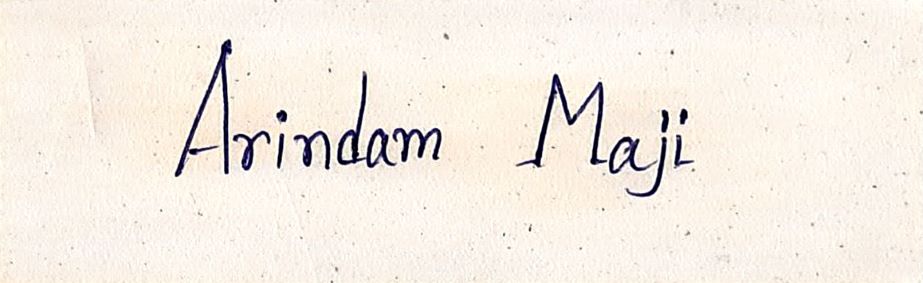 Arindam Maji